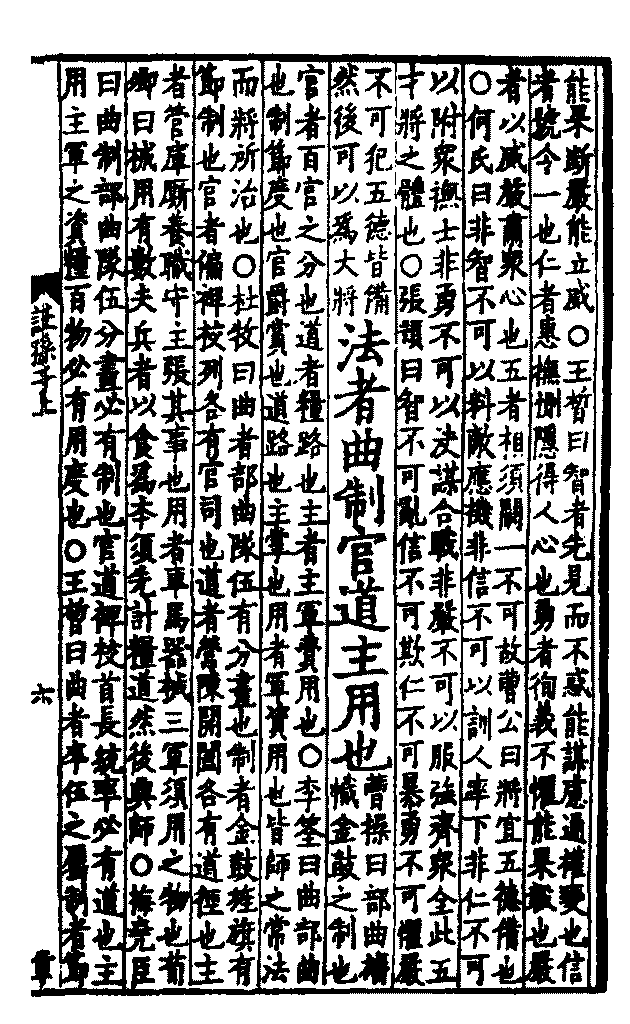 能果斷嚴能立威○王晳曰智者先見而不惑能謀慮通權變也信
者號令一也仁者惠撫惻隱得人心也勇者徇義不懼能果毅也嚴
者以威嚴肅衆心也五者相須闕一不可故曹公曰將宜五德備也
○何氏曰非智不可以料敵應機非信不可以訓人率下非仁不可
以附衆撫士非勇不可以決謀合戰非嚴不可以服強齊衆全此五
才將之體也○張預曰智不可亂信不可欺仁不可暴勇不可懼嚴
不可犯五德皆備
然後可以爲大將
法者曲制官道主用也
曹操曰部曲旛
幟金鼓之制也
官者百官之分也道者糧路也主者主軍費用也○李筌曰曲部曲
也制節度也官爵賞也道路也主掌也用者軍資用也皆師之常法
而將所治也○杜牧曰曲者部曲隊伍有分畫也制者金鼓旌旗有
節制也官者偏裨校列各有官司也道者營陳開闔各有道徑也主
者管庫厮養職守主張其事也用者車馬器械三軍須用之物也荀
卿曰械用有數夫兵者以食爲本須先計糧道然後興師○梅堯臣
曰曲制部曲隊伍分畫必有制也官道裨校首長統率必有道也主
用主軍之資糧百物必有用度也○王晳曰曲者卒伍之屬制者節
註孫子上
六
章